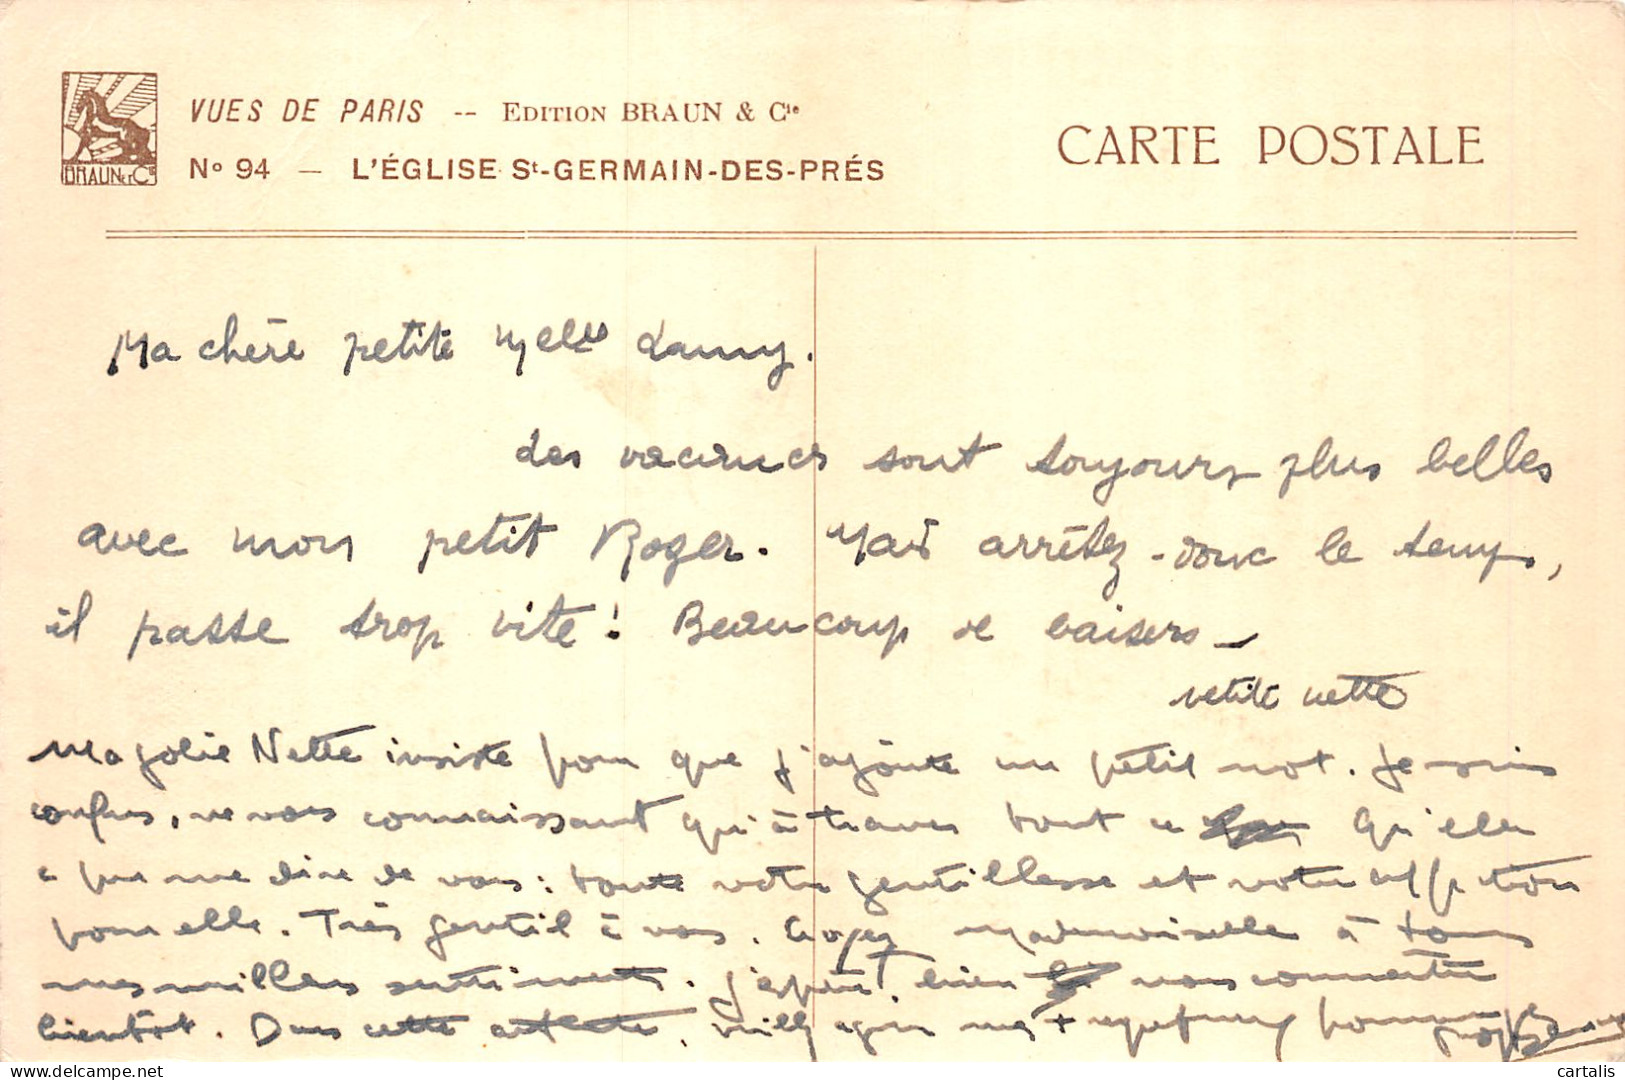 VUES DE PARIS -- EDITION BRAUN & Cie
No 94 — L'ÉGLISE St-GERMAIN-DES-PRÉS
BRAUN ET Cie
CARTE POSTALE
Ma chère petite Melle
des vacances sont toujours plus belles
avec mon petit Roger. Mais arrêtez-donc le temps,
il passe trop vite! Beaucoup de baisers —
petite nette
Ma jolie Nette insiste pour que j'ajoute un petit mot. Je suis
confus, ne vous connaissant qu'à travers tout ce qu'elle
a pu me dire de vous: toute votre gentillesse et votre affection
pour elle. Très gentil à vous. Croyez Mademoiselle à tous
mes meilleurs sentiments. J'espère bien vous connaître
bientôt. Dans cette attente, mes
cartalis